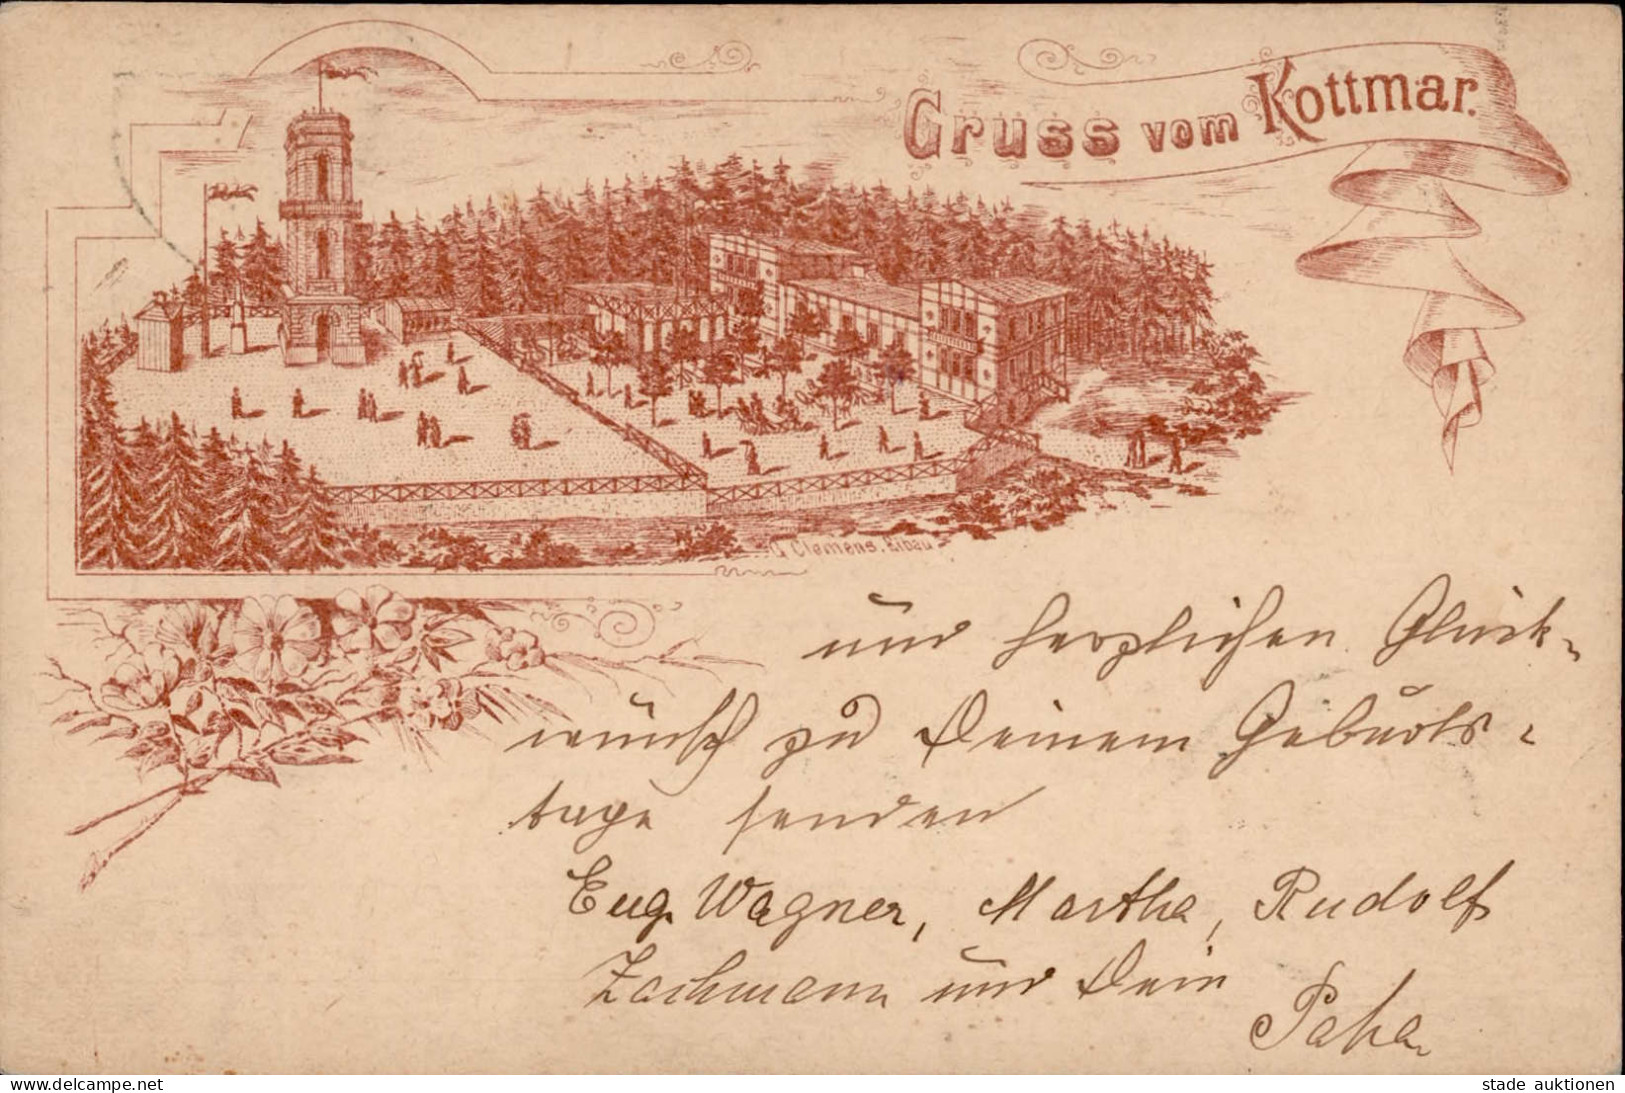 Gruss vom Kottmar.
G Clemens. Eibau
und herzlichen Glück-
wünsch zu Deinem Geburts-
tage senden
Eug. Wagner, Martha, Rudolf
Zachmann und Dein
delcampe.net
stade auktionen